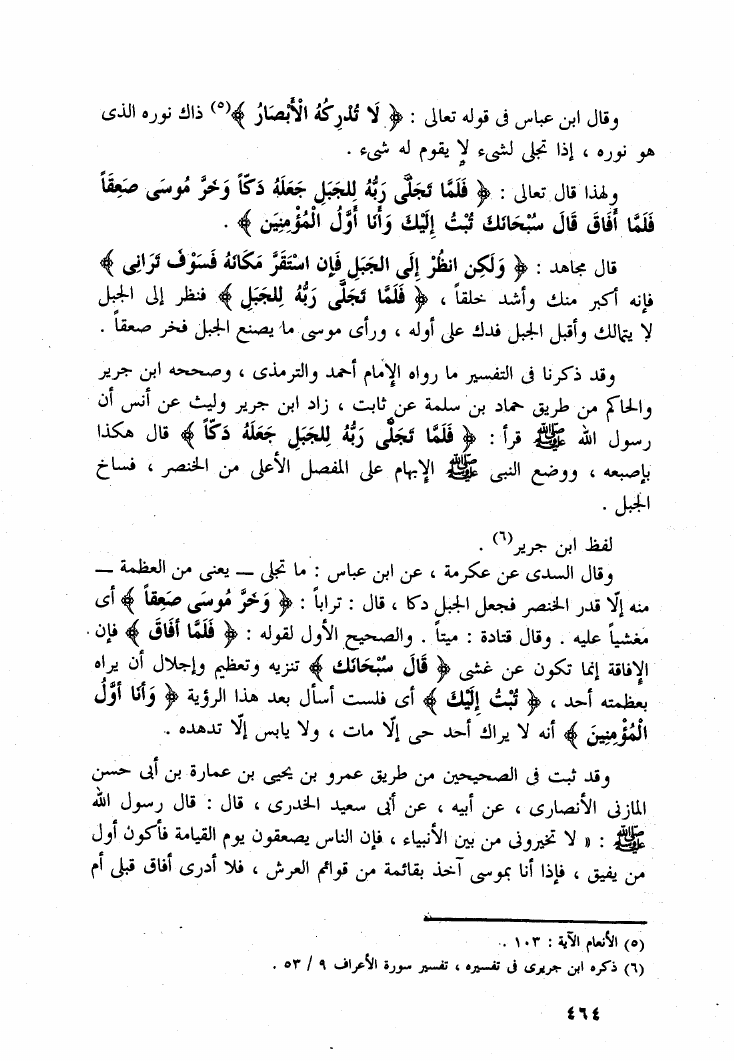 وقال ابن عباس فى قوله تعالى : ﴿ لَا تُدْرِكُهُ الْأَبْصَارُ ﴾(٥) ذاك نوره الذى
هو نوره ، إذا تجلى لشىء لا يقوم له شىء .
ولهذا قال تعالى : ﴿ فَلَمَّا تَجَلَّى رَبُّهُ لِلجَبَلِ جَعَلَهُ دَكّاً وَخَرَّ مُوسَى صَعِقاً
فَلَمَّا أَفَاقَ قَالَ سُبْحَانَكَ تُبْتُ إِلَيْكَ وَأَنَا أَوَّلُ الْمُؤْمِنِينَ ﴾ .
قال مجاهد : ﴿ وَلَكِنِ انظُرْ إِلَى الجَبَلِ فَإِن اسْتَقَرَّ مَكَانَهُ فَسَوْفَ تَرَانِى ﴾
فإنه أكبر منك وأشد خلقاً ، ﴿ فَلَمَّا تَجَلَّى رَبُّهُ لِلجَبَلِ ﴾ فنظر إلى الجبل
لا يتمالك وأقبل الجبل فدك على أوله ، ورأى موسى ما يصنع الجبل فخر صعقاً .
وقد ذكرنا فى التفسير ما رواه الإمام أحمد والترمذى ، وصححه ابن جرير
والحاكم من طريق حماد بن سلمة عن ثابت ، زاد ابن جرير وليث عن أنس أن
رسول الله ﷺ قرأ : ﴿ فَلَمَّا تَجَلَّى رَبُّهُ لِلجَبَلِ جَعَلَهُ دَكّاً ﴾ قال هكذا
بإصبعه ، ووضع النبى ﷺ الإبهام على المفصل الأعلى من الخنصر ، فساخ
الجبل .
لفظ ابن جرير(٦) .
وقال السدى عن عكرمة ، عن ابن عباس : ما تجلى — يعنى من العظمة —
منه إلّا قدر الخنصر فجعل الجبل دكا ، قال : تراباً : ﴿ وَخَرَّ مُوسَى صَعِقاً ﴾ أى
مغشياً عليه . وقال قتادة : ميتاً . والصحيح الأول لقوله : ﴿ فَلَمَّا أَفَاقَ ﴾ فإن
الإفاقة إنما تكون عن غشى ﴿ قَالَ سُبْحَانَكَ ﴾ تنزيه وتعظيم وإجلال أن يراه
بعظمته أحد ، ﴿ تُبْتُ إِلَيْكَ ﴾ أى فلست أسأل بعد هذا الرؤية ﴿ وَأَنَا أَوَّلُ
الْمُؤْمِنِينَ ﴾ أنه لا يراك أحد حى إلّا مات ، ولا يابس إلّا تدهده .
وقد ثبت فى الصحيحين من طريق عمرو بن يحيى بن عمارة بن أبى حسن
المازنى الأنصارى ، عن أبيه ، عن أبى سعيد الخدرى ، قال : قال رسول الله
ﷺ : « لا تخيرونى من بين الأنبياء ، فإن الناس يصعقون يوم القيامة فأكون أول
من يفيق ، فإذا أنا بموسى آخذ بقائمة من قوائم العرش ، فلا أدرى أفاق قبلى أم
(٥) الأنعام الآية : ١٠٣ .
(٦) ذكره ابن جريرى فى تفسيره ، تفسير سورة الأعراف ٩ / ٥٣ .
٤٦٤